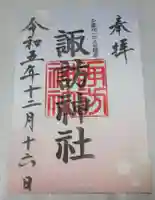 奉拝
諏訪神社
令和五年十二月十六日